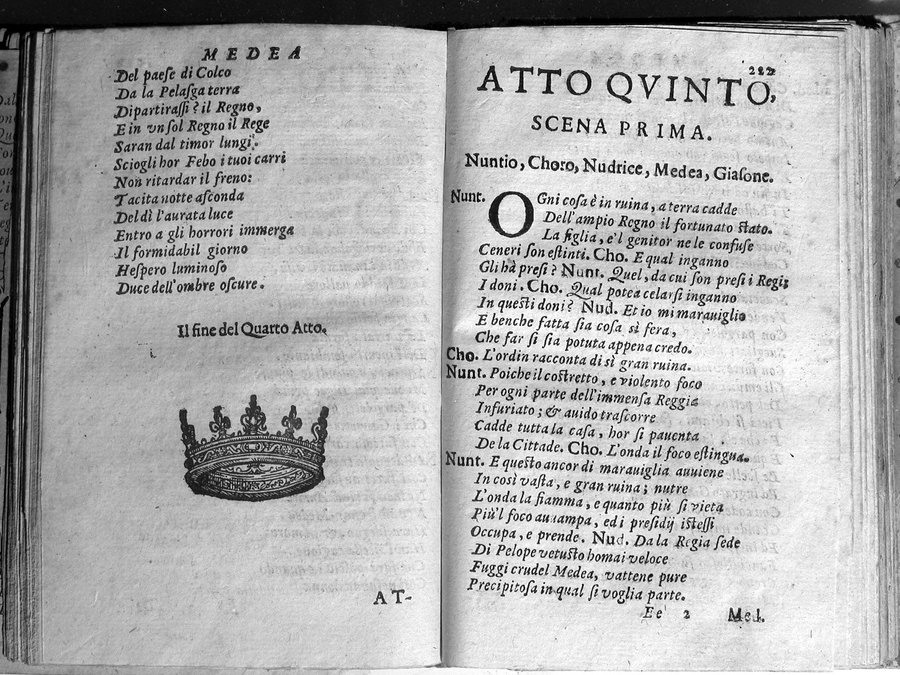 MEDEA
Del paese di Colco
Da la Pelasga terra
Dipartirassi? il Regno,
E in vn sol Regno il Rege
Saran dal timor lungi.
Sciogli hor Febo i tuoi carri
Non ritardar il freno:
Tacita notte asconda
Del dì l'aurata luce
Entro a gli horrori immerga
Il formidabil giorno
Hespero luminoso
Duce dell'ombre oscure.
Il fine del Quarto Atto.
AT-
ATTO QVINTO,
SCENA PRIMA.
Nuntio, Choro, Nudrice, Medea, Giasone.
Nunt. Ogni cosa è in ruina, a terra cadde
Dell'ampio Regno il fortunato stato.
La figlia, e'l genitor ne le confuse
Ceneri son estinti. Cho. E qual inganno
Gli hà presi? Nunt. Quel, da cui son presi i Regi;
I doni. Cho. Qual potea celarsi inganno
In questi doni? Nud. Et io mi marauiglio
E benche fatta sia cosa sì fera,
Che far si sia potuta appena credo.
Cho. L'ordin racconta di sì gran ruina.
Nunt. Poiche il costretto, e violento foco
Per ogni parte dell'immensa Reggia
Infuriato; & auido trascorre
Cadde tutta la casa, hor si pauenta
De la Cittade. Cho. L'onda il foco estingua.
Nunt. E questo ancor di marauiglia auuiene
In così vasta, e gran ruina; nutre
L'onda la fiamma, e quanto più si vieta
Più'l foco auuampa, ed i presidij istessi
Occupa, e prende. Nud. Da la Regia sede
Di Pelope vetusto homai veloce
Fuggi crudel Medea, vattene pure
Precipitosa in qual si voglia parte.
Ee 2 Med.